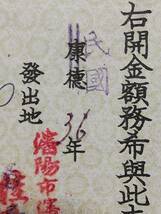 右開金額務希與此
民國
康德36年
發出地
瀋陽市